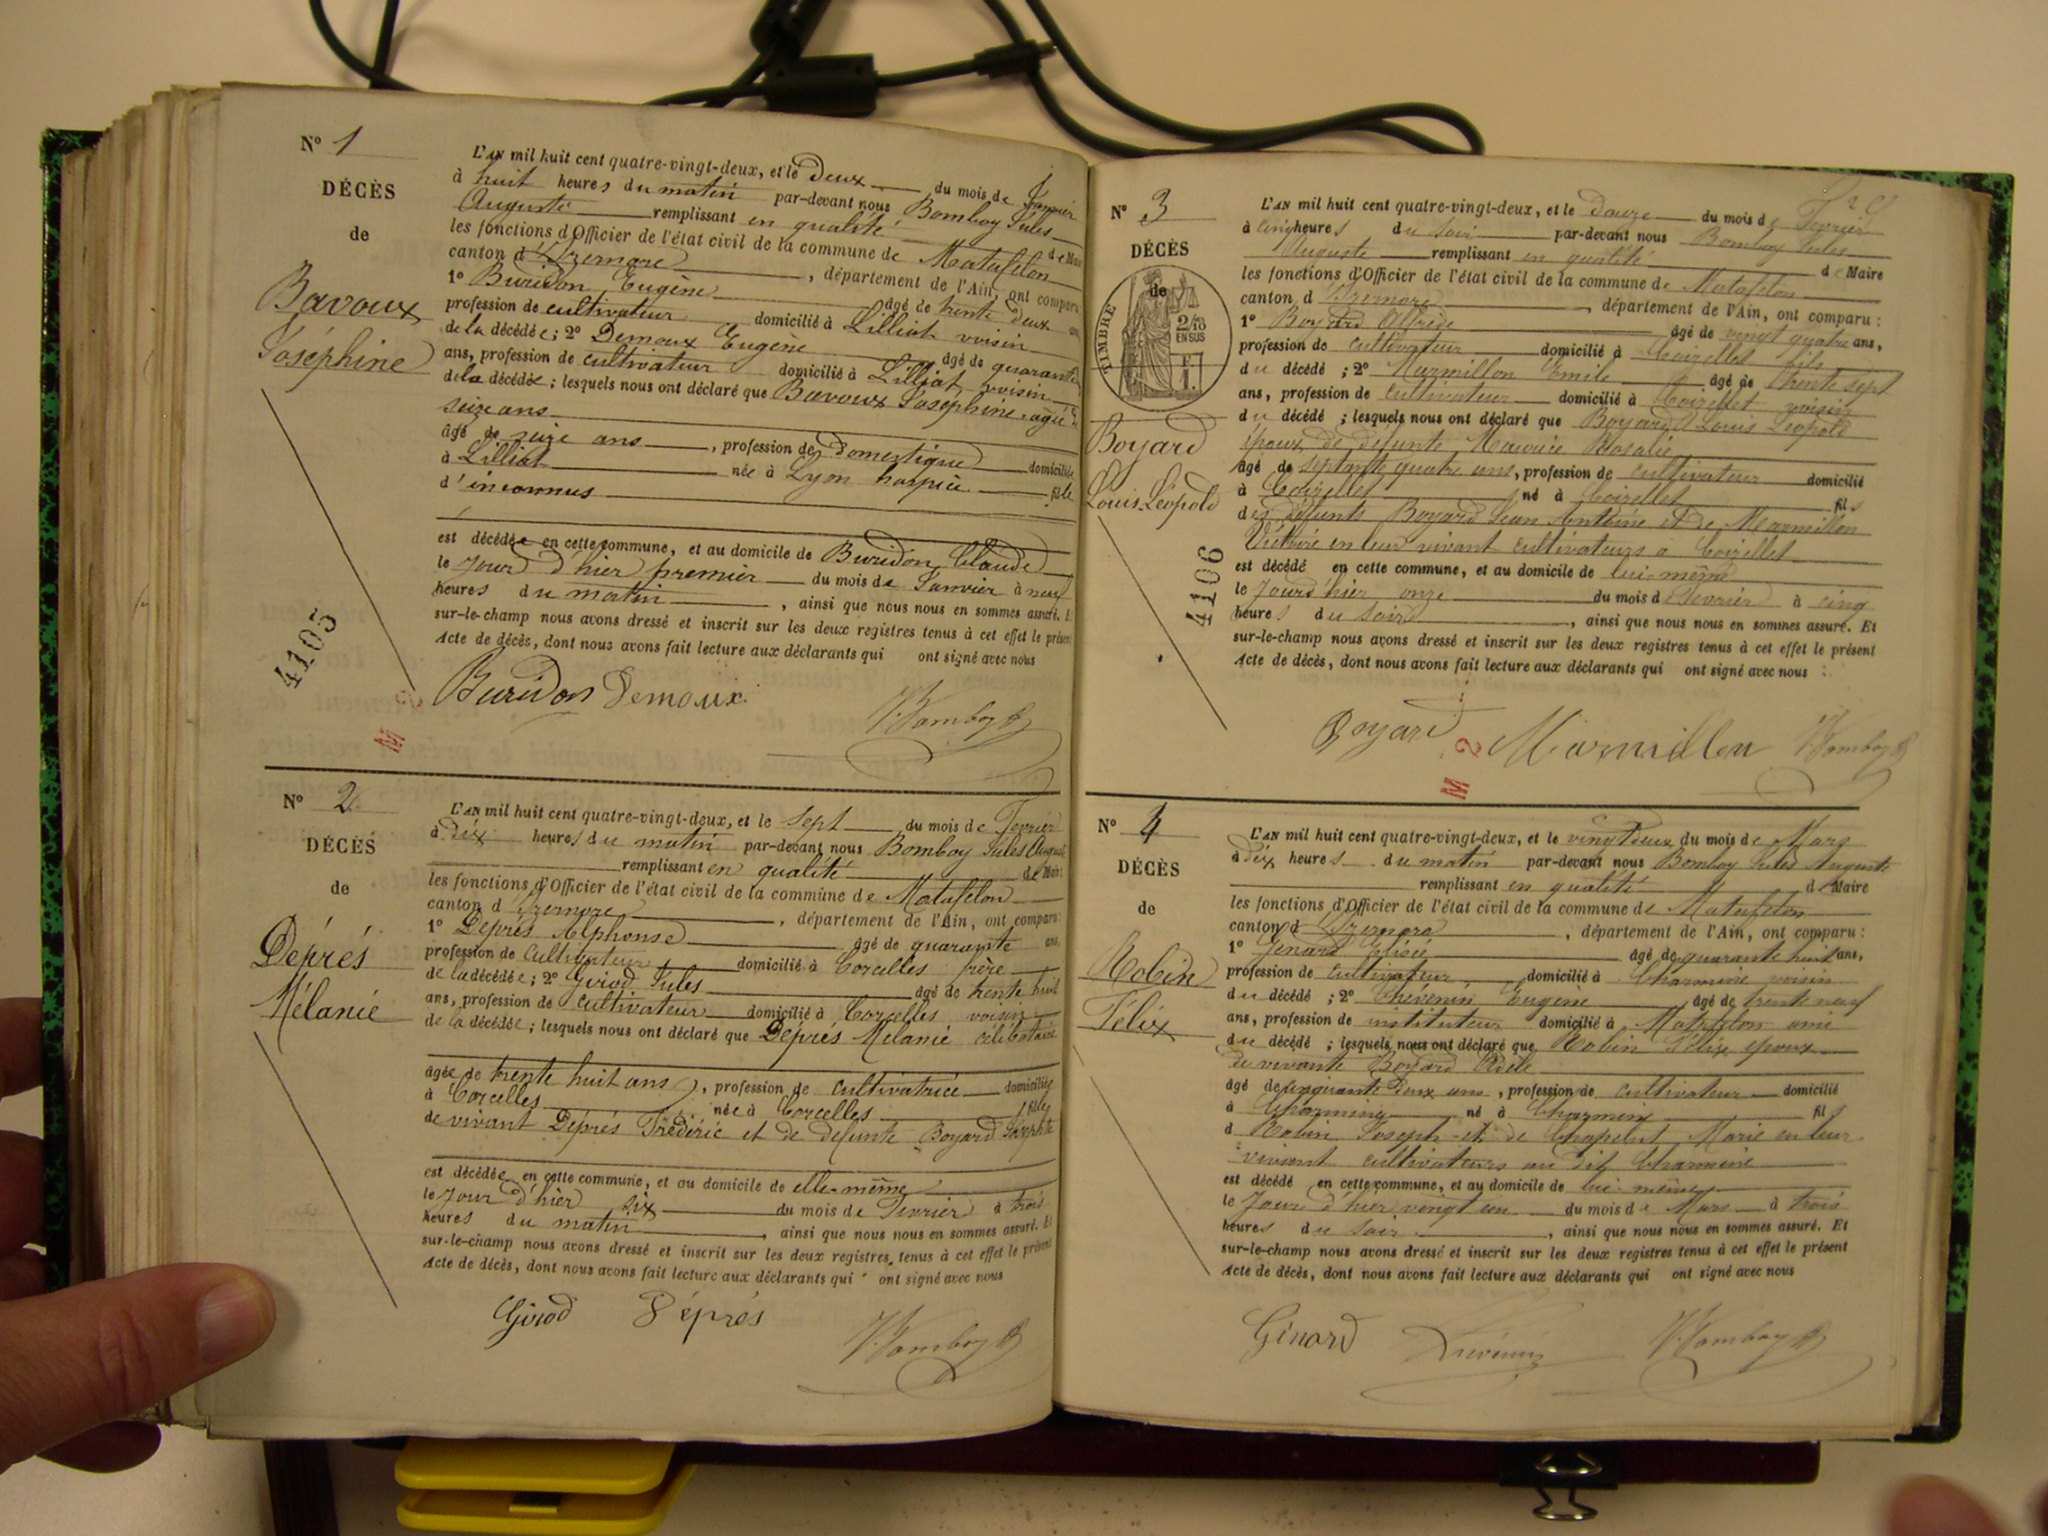 N° 1
DÉCÈS
de
Bavoux
Joséphine
4105
L'AN mil huit cent quatre-vingt-deux, et le deux du mois de Janvier
à huit heures du matin par-devant nous Bomboy Jules
Auguste remplissant en qualité de Mai
les fonctions d'Officier de l'état civil de la commune de Matafelon
canton d'Izernore, département de l'Ain, ont comparu
1° Buridon Eugène âgé de trente deux ans
profession de cultivateur domicilié à Lilliat voisin
de la décédée; 2° Demoux Eugène âgé de quarante
ans, profession de cultivateur domicilié à Lilliat voisin
de la décédée; lesquels nous ont déclaré que Bavoux Joséphine agée de
seize ans
âgé de seize ans, profession de domestique domicilié
à Lilliat née à Lyon hospice fille
d'inconnus
est décédée en cette commune, et au domicile de Buridon Claude
le jour d'hier premier du mois de Janvier à neuf
heures du matin, ainsi que nous nous en sommes assuré. E
sur-le-champ nous avons dressé et inscrit sur les deux registres tenus à cet effet le présent
Acte de décès, dont nous avons fait lecture aux déclarants qui ont signé avec nous
Buridon Demoux J. Bomboy
M 2
N° 2
DÉCÈS
de
Déprés
Mélanie
L'AN mil huit cent quatre-vingt-deux, et le sept du mois de Fevrier
à dix heures du matin par-devant nous Bomboy Jules August
remplissant en qualité de Mai
les fonctions d'Officier de l'état civil de la commune de Matafelon
canton d Izernore, département de l'Ain, ont comparu:
1° Déprés Alphonse âgé de quarante ans,
profession de cultivateur domicilié à Corcelles frère
de la décédée; 2° Girod Jules âgé de trente huit
ans, profession de cultivateur domicilié à Corcelles voisin
de la décédée; lesquels nous ont déclaré que Déprés Mélanie célibataire
âgée de trente huit ans, profession de cultivatrice domiciliée
à Corcelles née à Corcelles fille
de vivant Déprés Frédéric et de défunte Boyard Josephte
est décédée en cette commune, et au domicile de elle-même
le jour d'hier six du mois de Fevrier à trois
heures du matin, ainsi que nous nous en sommes assuré. Et
sur-le-champ nous avons dressé et inscrit sur les deux registres tenus à cet effet le présent
Acte de décès, dont nous avons fait lecture aux déclarants qui ont signé avec nous
Girod Déprés J. Bomboy
N° 3
DÉCÈS
de
TIMBRE
2/10
EN SUS
Boyard
Louis Léopold
4106
L'AN mil huit cent quatre-vingt-deux, et le douze du mois de Fevrier
à cinq heures du soir par-devant nous Bomboy Jules
Auguste remplissant en qualité de Maire
les fonctions d'Officier de l'état civil de la commune de Matafelon
canton d Izernore, département de l'Ain, ont comparu:
1° Boyard Alfride âgé de vingt quatre ans,
profession de cultivateur domicilié à Coizellet fils
du décédé; 2° Marmillon Emile âgé de trente sept
ans, profession de cultivateur domicilié à Coizellet voisin
du décédé; lesquels nous ont déclaré que Boyard Louis Léopold
époux de défunte Maurice Rosalie
âgé de septante quatre ans, profession de cultivateur domicilié
à Coizellet né à Coizellet fils
des défunts Boyard Jean Antoine et de Marmillon
Victoire en leur vivant cultivateurs à Coizellet
est décédé en cette commune, et au domicile de lui-même
le jour d'hier onze du mois d Fevrier à cinq
heures du soir, ainsi que nous nous en sommes assuré. Et
sur-le-champ nous avons dressé et inscrit sur les deux registres tenus à cet effet le présent
Acte de décès, dont nous avons fait lecture aux déclarants qui ont signé avec nous:
Boyard Marmillon J. Bomboy
M 2
N° 4
DÉCÈS
de
Robin
Félix
L'AN mil huit cent quatre-vingt-deux, et le vingt deux du mois de Mars
à dix heures du matin par-devant nous Bomboy Jules Auguste
remplissant en qualité de Maire
les fonctions d'Officier de l'état civil de la commune de Matafelon
canton d'Izernore, département de l'Ain, ont comparu:
1° Génard âgé de quarante huit ans,
profession de cultivateur domicilié à Charmine voisin
du décédé; 2° Thévenin Eugène âgé de trente neuf
ans, profession de instituteur domicilié à Matafelon ami
du décédé; lesquels nous ont déclaré que Robin Félix époux
de vivante Boyard Adèle
âgé de cinquante deux ans, profession de cultivateur domicilié
à Charmine né à Charmine fil
d Robin Joseph et de Chapelut Marie en leur
vivant cultivateurs au dit Charmine
est décédé en cette commune, et au domicile de lui-même
le jour d'hier vingt un du mois de Mars à trois
heures du soir, ainsi que nous nous en sommes assuré. Et
sur-le-champ nous avons dressé et inscrit sur les deux registres tenus à cet effet le présent
Acte de décès, dont nous avons fait lecture aux déclarants qui ont signé avec nous
Génard Thévenin J. Bomboy